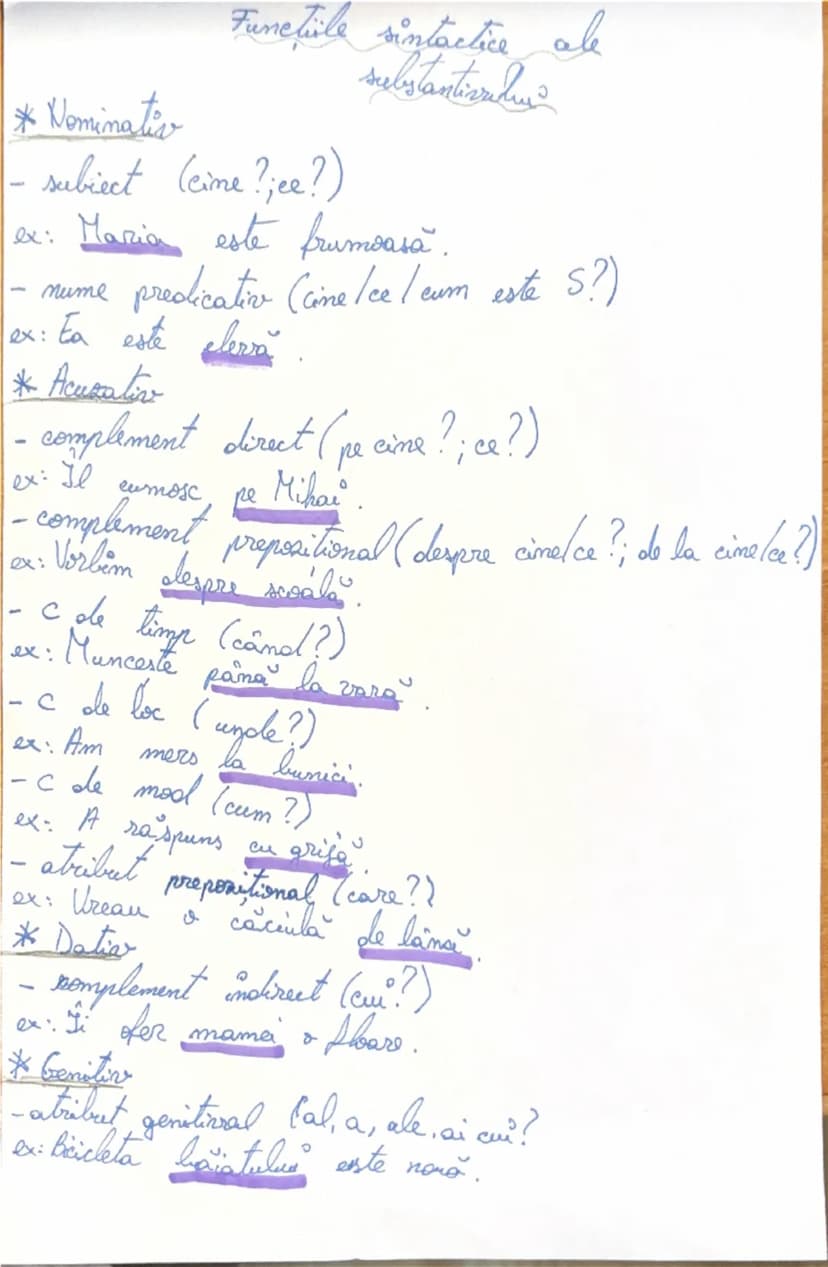 Funcțiile sintactice ale
substantivului
* Nominativ
- subiect (cine?; ce?)
ex: Maria este frumoasă.
- nume predicativ (cine/ce/cum este S?)
ex: Ea este elevă.
* Acuzativ
- complement direct (pe cine?; ce?)
ex: Îl cunosc pe Mihai.
- complement prepozițional (despre cine/ce?; de la cine/ce?)
ex: Vorbim despre școală.
- C de timp (când?)
ex: Muncește până la vară.
- C de loc (unde?)
ex: Am mers la bunici.
- C de mod (cum?)
ex: A răspuns cu grijă.
- atribut prepozițional (care?)
ex: Vreau o căciulă de lână.
* Dativ
- complement indirect (cui?)
ex: Îi ofer mamei o floare.
* Genitiv
- atribut genitival (al, a, ale, ai cui?
ex: Bicicleta băiatului este nouă.